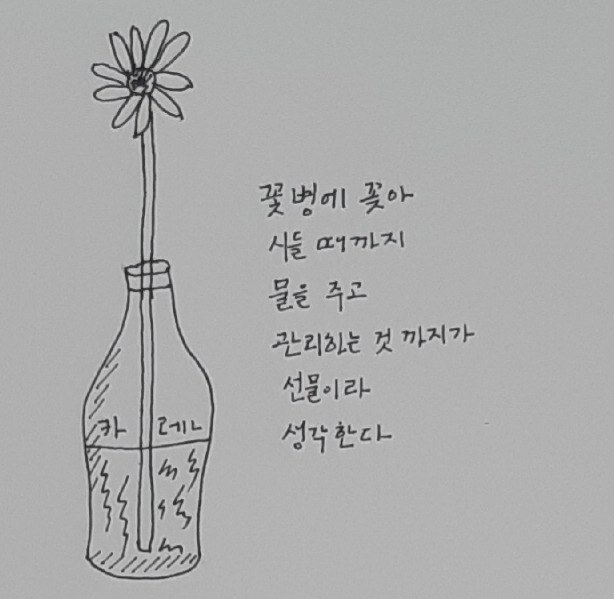 꽃병에 꽂아
시들 때까지
물을 주고
관리하는 것 까지가
선물이라
생각한다
카 레나